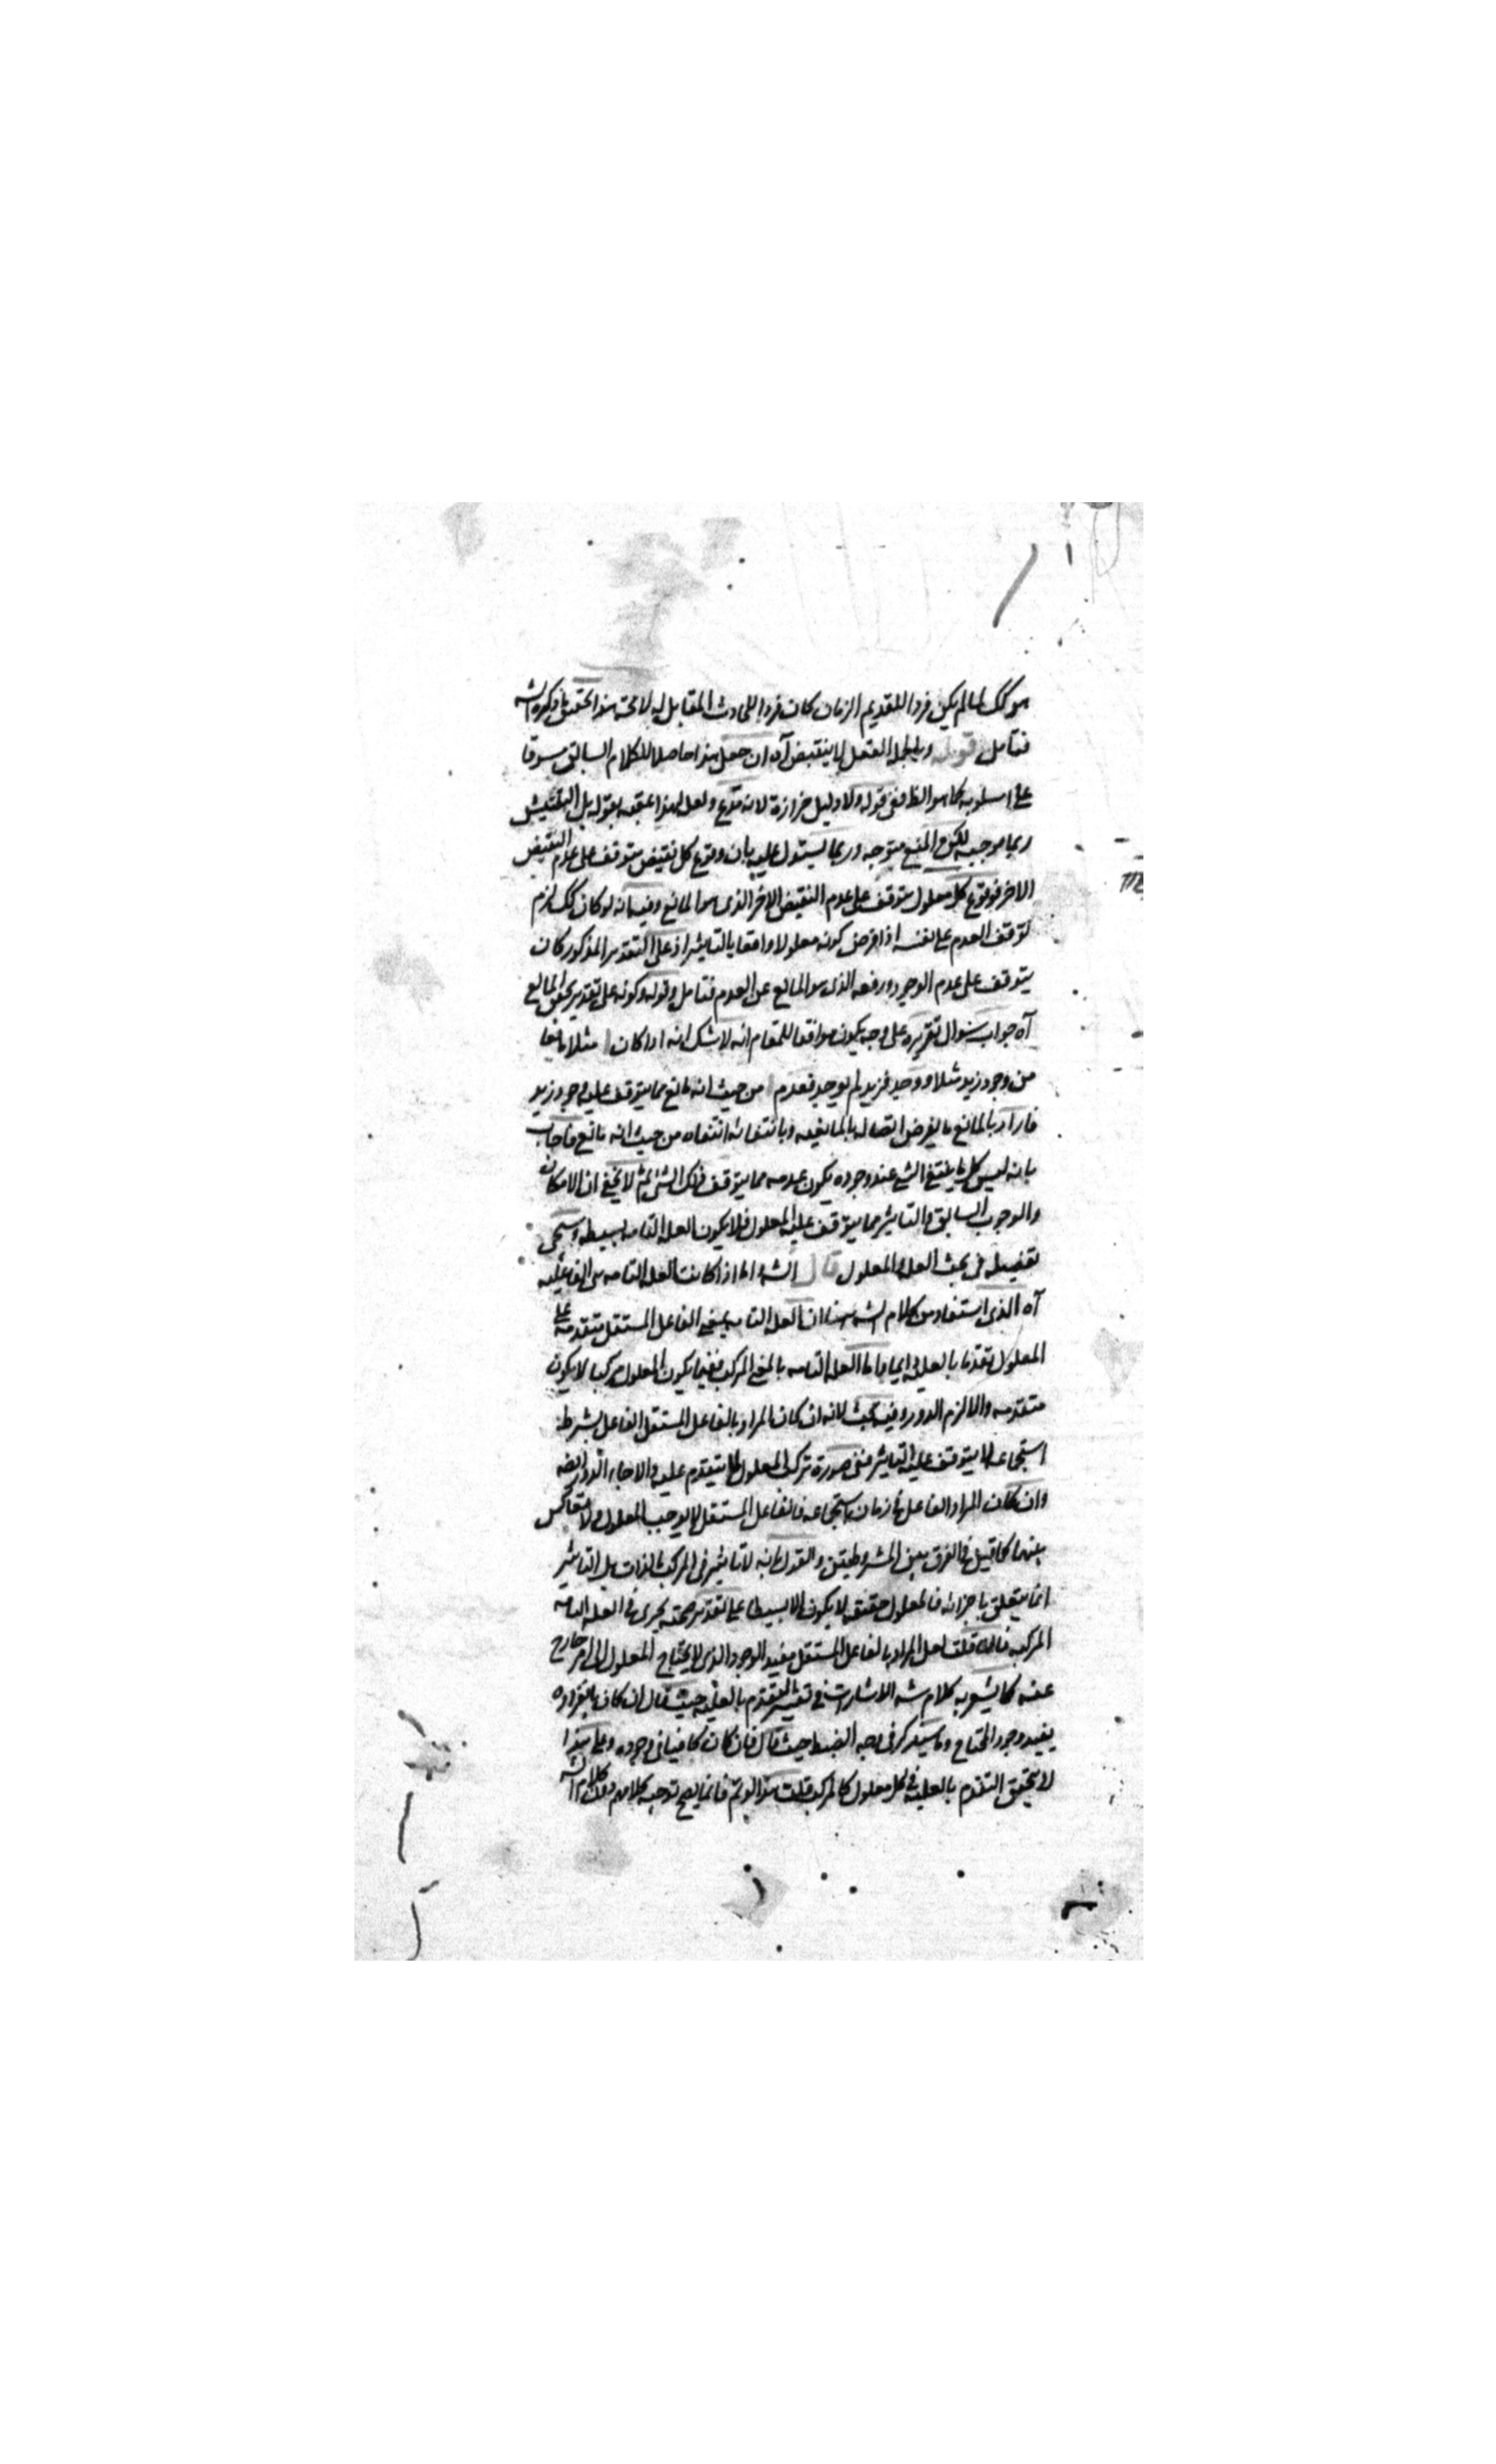 هو كك لما لم يكن فردا للقديم الزمان كان فردا للحادث المقابل له لا محة هذا تحقيق ما ذكره الش
فتأمل قوله وبالجملة العقل لا ينقبض آه ان جعل هذا حاصلا للكلام السابق مسوقا
على اسلوبه كما هو الظ ففي قوله ولا دليل حزازة لانه مدع ولعل لهذا عقبه بقوله بل التفتيش
ربما يوجبه لكن المنع متوجه وربما يستدل عليه بان وقوع كل نقيض متوقف على عدم النقيض
الاخر فوقوع كل معلول متوقف على عدم النقيض الاخر الذى هو المانع وفيه انه لو كان كك لزم
توقف العدم على نفسه اذا فرض كونه معلولا واقعا بالتأثير اذ على التقدير المذكور كان
يتوقف على عدم الوجود ورفعه الذى هو المانع عن العدم فتأمل وقوله وكونه على تقدير تحقق المانع
آه جواب سؤال تقريره على وجه يكون موافقا للمقام انه لا شك انه اذا كان ا مثلا مانعا
من وجود زيد مثلا ووجد فزيد لم يوجد فعدم ا من حيث انه مانع مما يتوقف عليه وجود زيد
فاراد بالمانع ما يفرض اتصاله بالمانعيه وبانتفائه انتفاه من حيث انه مانع فاجاب
بانه ليس كل ما ينتفى الشى عند وجوده يكون عدمه مما يتوقف ذلك الشئ ثم لا يخفى ان الامكان
والوجوب السابق والتاثير مما يتوقف عليه المعلول فلا يكون العله التامه بسيطه وسيجى
تفصيله فى بحث العله والمعلول قال الش واما اذا كانت العله التامه هى الفاعليه
آه الذى استفاد من كلام الش هنا ان العله التامه بمعنى الفاعل المستقل متقدمه على
المعلول تقدما بالعليه ايجابا واما العله التامه بالمعنى المركب ففيما يكون المعلول مركبا لا يكون
متقدمه والا لزم الدور وفيه بحث لانه ان كان المراد بالفاعل المستقل الفاعل بشرط
استجماعه لما يتوقف عليه التاثير ففى صورة تركب المعلول لا يتقدم عليه والا جاء الدور ايضه
وان كان المراد الفاعل فى زمان استجماعه فالفاعل المستقل لا يوجب المعلول ولا تعاكس
بينهما كما قيل فى الفرق بين المشروطيتين والقول بانه لا تأثير فى المركب بالذات بل التاثير
انما يتعلق باجزائه فالمعلول حقيقه لا يكون الا بسيطا على تقدير صحته يجرى فى العله التامه
المركبه فان قلت لعل المراد بالفاعل المستقل مفيد الوجود الذى لا يحتاج المعلول الى امر خارج
عنه كما يشعر به كلام شه الاشارات فى تفسير التقدم بالعليه حيث قال ان كان بانفراده
يفيد وجود المحتاج وما سيذكر فى وجه الضبط حيث قال فان كان كافيا فى وجوده وعلى هذا
لا يتحقق التقدم بالعليه فى كل معلول كالمركب قلت هذا لو تم فانما يصح توجيه كلامهم دون كلام الش